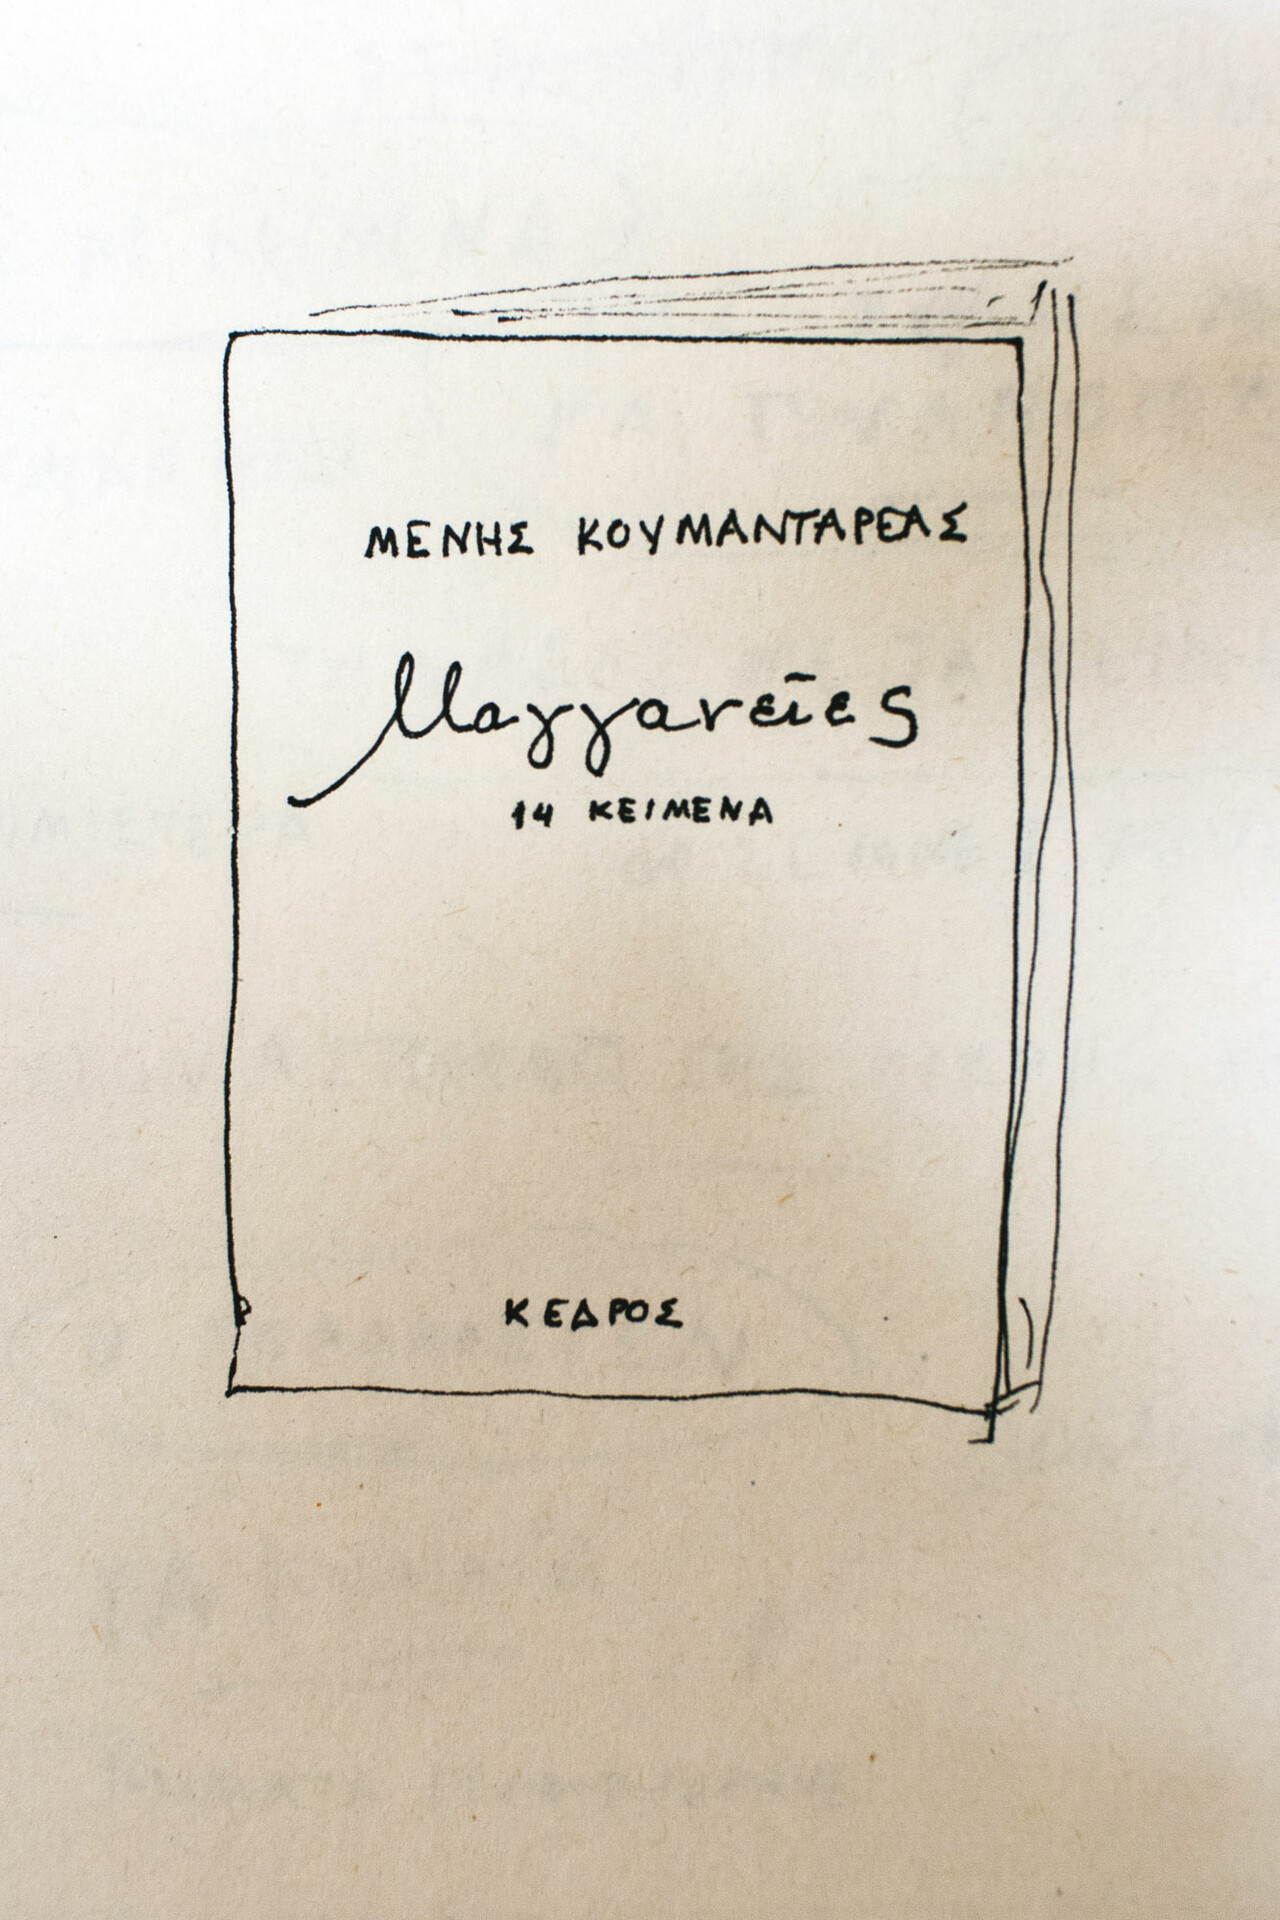 ΜΕΝΗΣ ΚΟΥΜΑΝΤΑΡΕΑΣ
Μαγγανεῖες
14 ΚΕΙΜΕΝΑ
ΚΕΔΡΟΣ